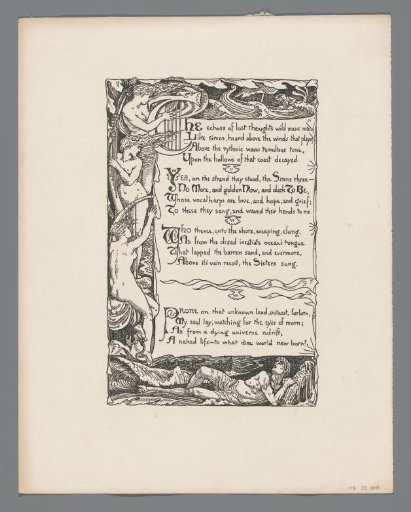 THE echoes of lost thoughts wild music made
Like sirens, heard above the winds that played
Above the rythmic waves tumultous tone,
Upon the hollows of that coast decayed.
YEA, on the strand they stood, the Sirens three—
No More, and golden Now, and dark To Be,
Whose vocal harps are love, and hope, and grief:
To these they sang, and waved their hands to me.
WHO thence, unto the shore, escaping, clung,
As from the dread insatiate oceans tongue
That lapped the barren sand, and evermore,
Above its vain recoil, the Sisters sung.
PRONE on that unknown land, outcast, forlorn,
My soul lay; watching for the eyes of morn;
As from a dying universe adrift,
A naked life—to what dim world new born?